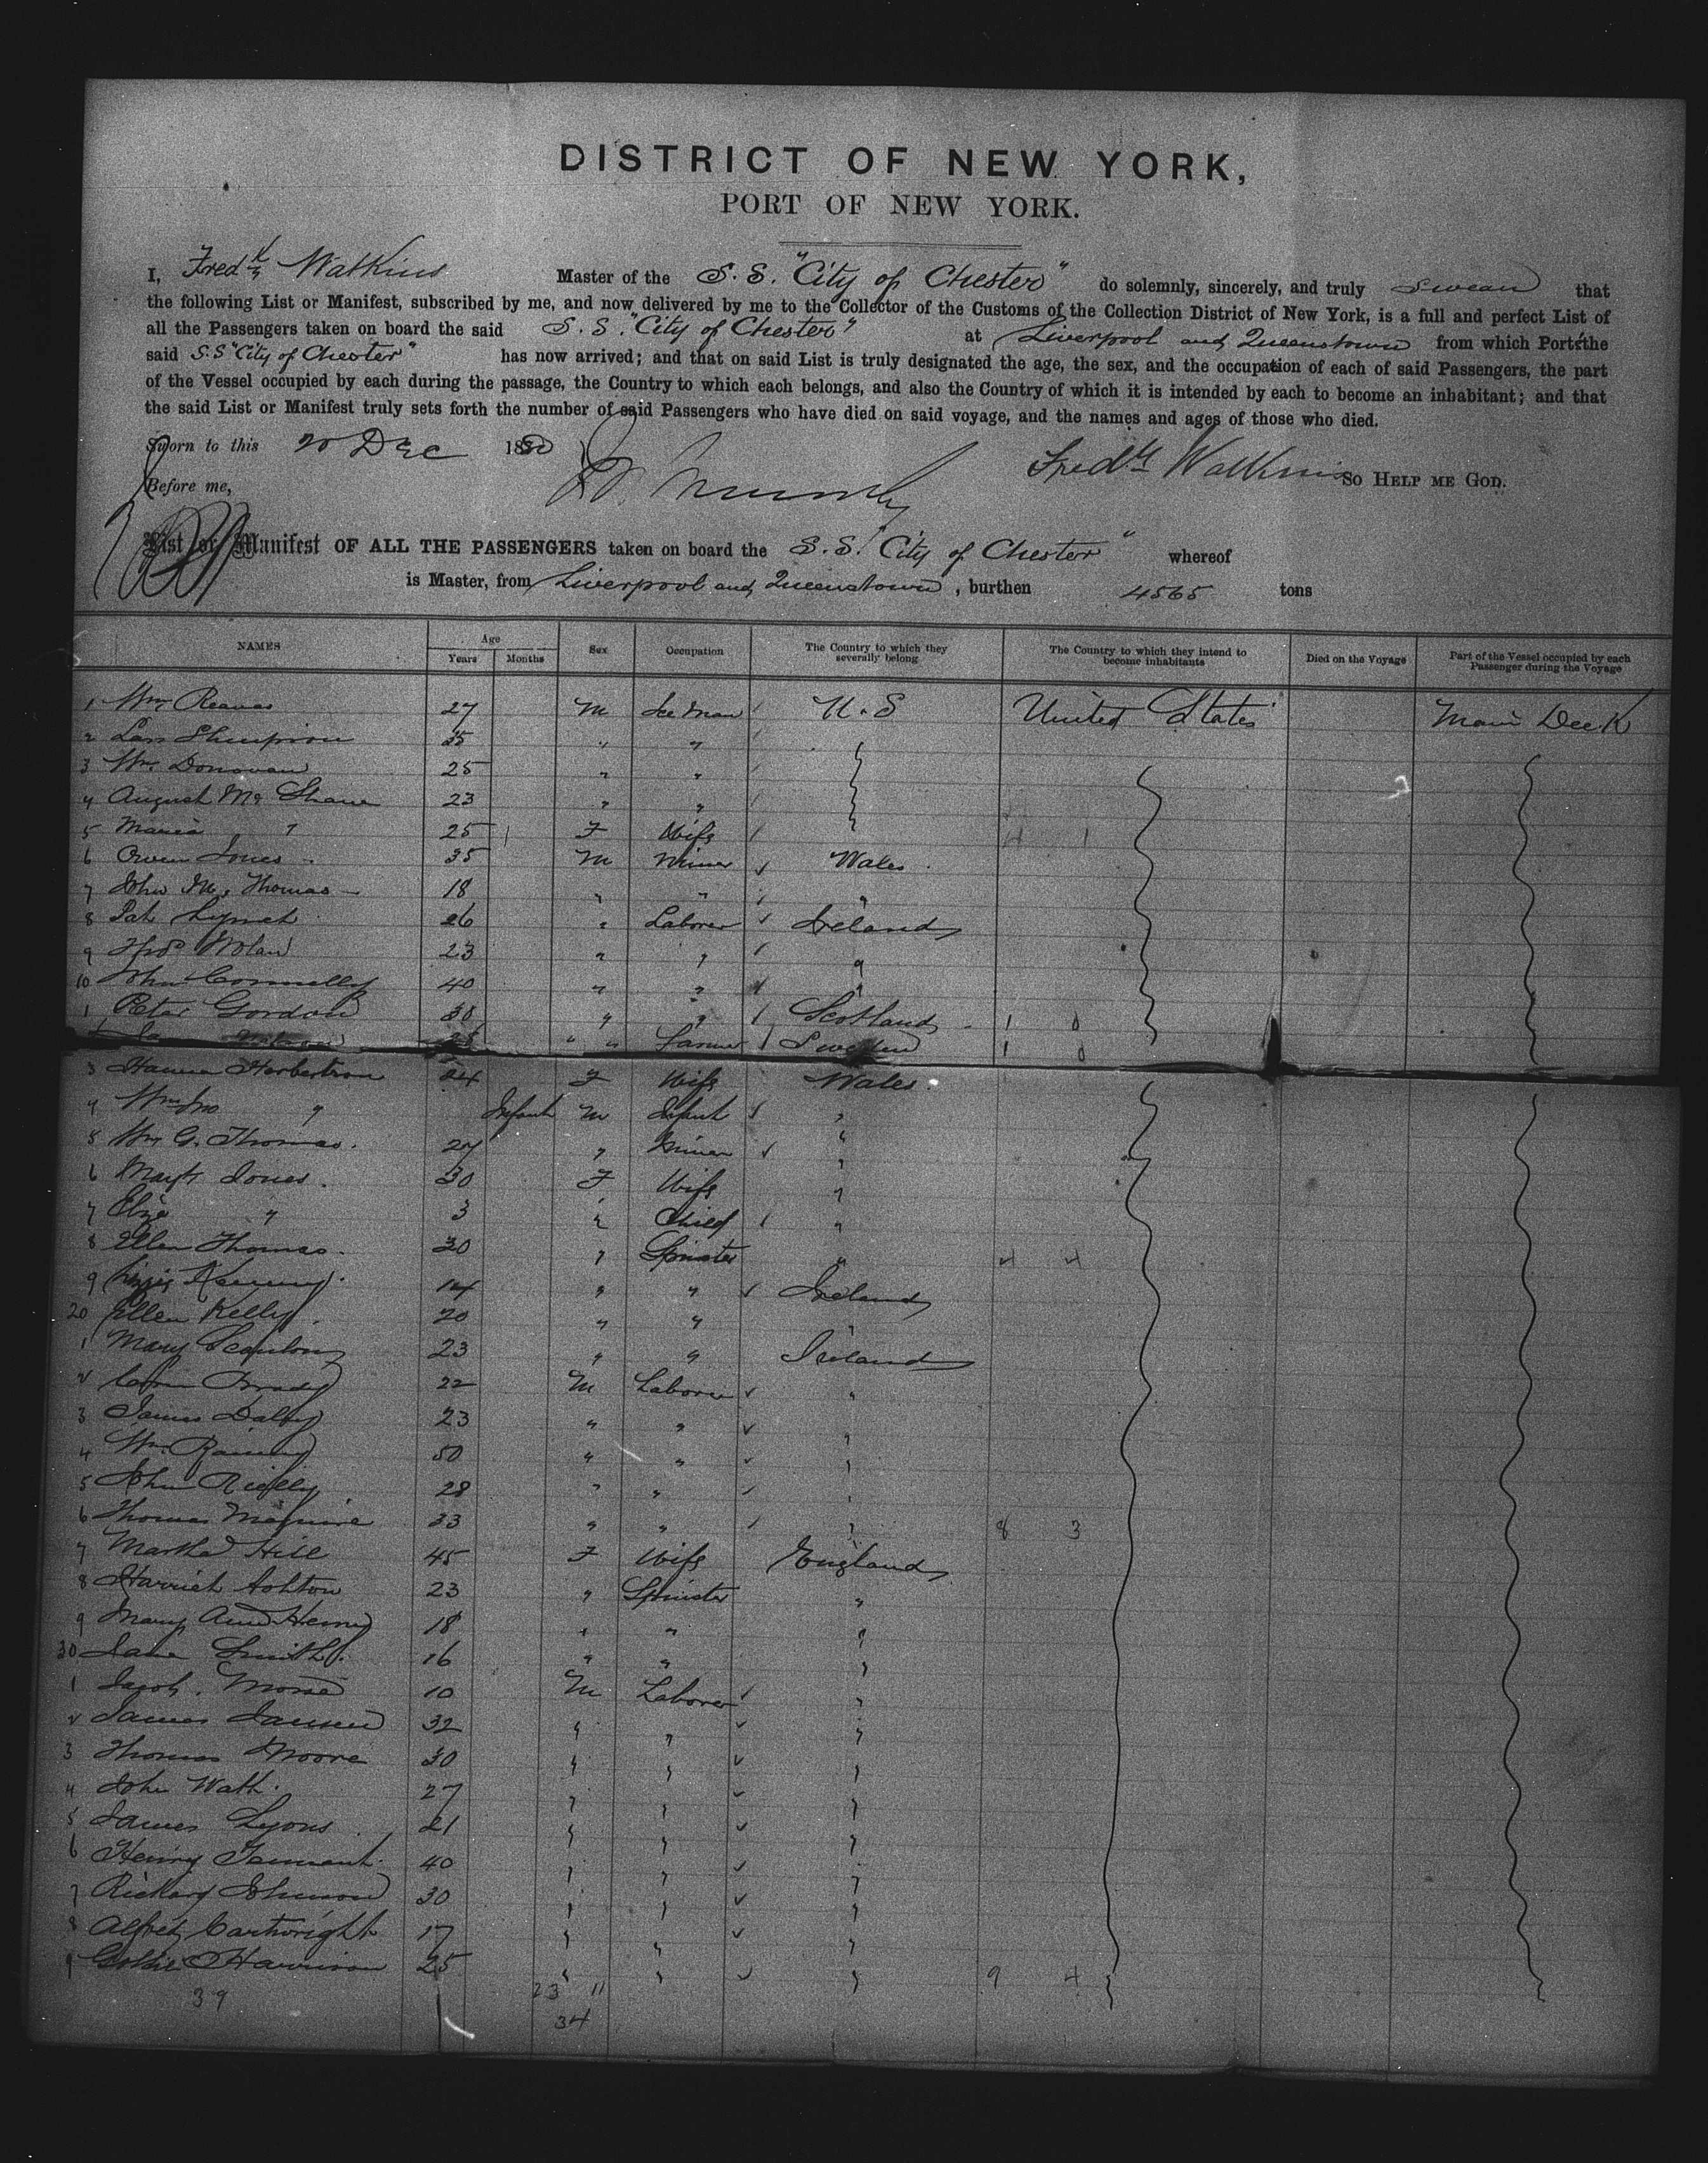 DISTRICT OF NEW YORK,
PORT OF NEW YORK.
I, Fredk Watkins Master of the S.S. "City of Chester" do solemnly, sincerely, and truly swear that
the following List or Manifest, subscribed by me, and now delivered by me to the Collector of the Customs of the Collection District of New York, is a full and perfect List of
all the Passengers taken on board the said S.S. "City of Chester" at Liverpool and Queenstown from which Port the
said S.S "City of Chester" has now arrived; and that on said List is truly designated the age, the sex, and the occupation of each of said Passengers, the part
of the Vessel occupied by each during the passage, the Country to which each belongs, and also the Country of which it is intended by each to become an inhabitant; and that
the said List or Manifest truly sets forth the number of said Passengers who have died on said voyage, and the names and ages of those who died.
Sworn to this 20 Dec 1880 Fredk Watkins So HELP ME GOD.
Before me,
List or Manifest OF ALL THE PASSENGERS taken on board the S.S. "City of Chester" whereof
is Master, from Liverpool and Queenstown, burthen 4565 tons
NAMES Age Years Months Sex Occupation The Country to which they severally belong The Country to which they intend to become inhabitants Died on the Voyage Part of the Vessel occupied by each Passenger during the Voyage
1 Wm Reaves 27 M U.S United States Main Deck
2 35 " "
3 Wm Donovan 25 " "
4 August Mc Shane 23 " "
5 Maria " 25 F Wife 4 1
6 Owen Jones 35 M Miner Wales
7 John M. Thomas 18 " " "
8 Pat Lynch 26 " Laborer Ireland
9 Thos Nolan 23 " " "
10 John Connelly 40 " " "
1 Peter Gordon 38 " " Scotland 1 0
" " Farmer Sweden 1 0
3 Hanna Herbertson 24 F Wife Wales
4 Wm Jno " Infant M Infant "
5 Wm G. Thomas 27 " Miner "
6 Margt Jones 30 F Wife "
7 Eliza " 3 " Child "
8 Ellen Thomas 30 " Spinster " 4 4
9 Lizzie 14 " " Ireland
20 Ellen Kelly 20 " " "
1 Mary Scanlon 23 " " Ireland
2 Brady 22 M Laborer "
3 James Dalby 23 " " "
4 Wm 50 " " "
5 John Rielly 28 " " "
6 Thomas Maguire 33 " " " 8 3
7 Martha Hill 45 F Wife England
8 Harriet Ashton 23 " Spinster "
9 Mary Ann Henry 18 " " "
30 Jane Smith 16 " " "
1 Jacob Morse 10 M Laborer "
2 James 32 " " "
3 Thomas Moore 30 " " "
4 John Wath 27 " " "
5 James Lyons 21 " " "
6 Henry Tennant 40 " " "
7 Richard Johnson 30 " " "
8 Alfred Cartwright 17 " " "
9 Harrison 25 " " " 9 4
39 23 11
34